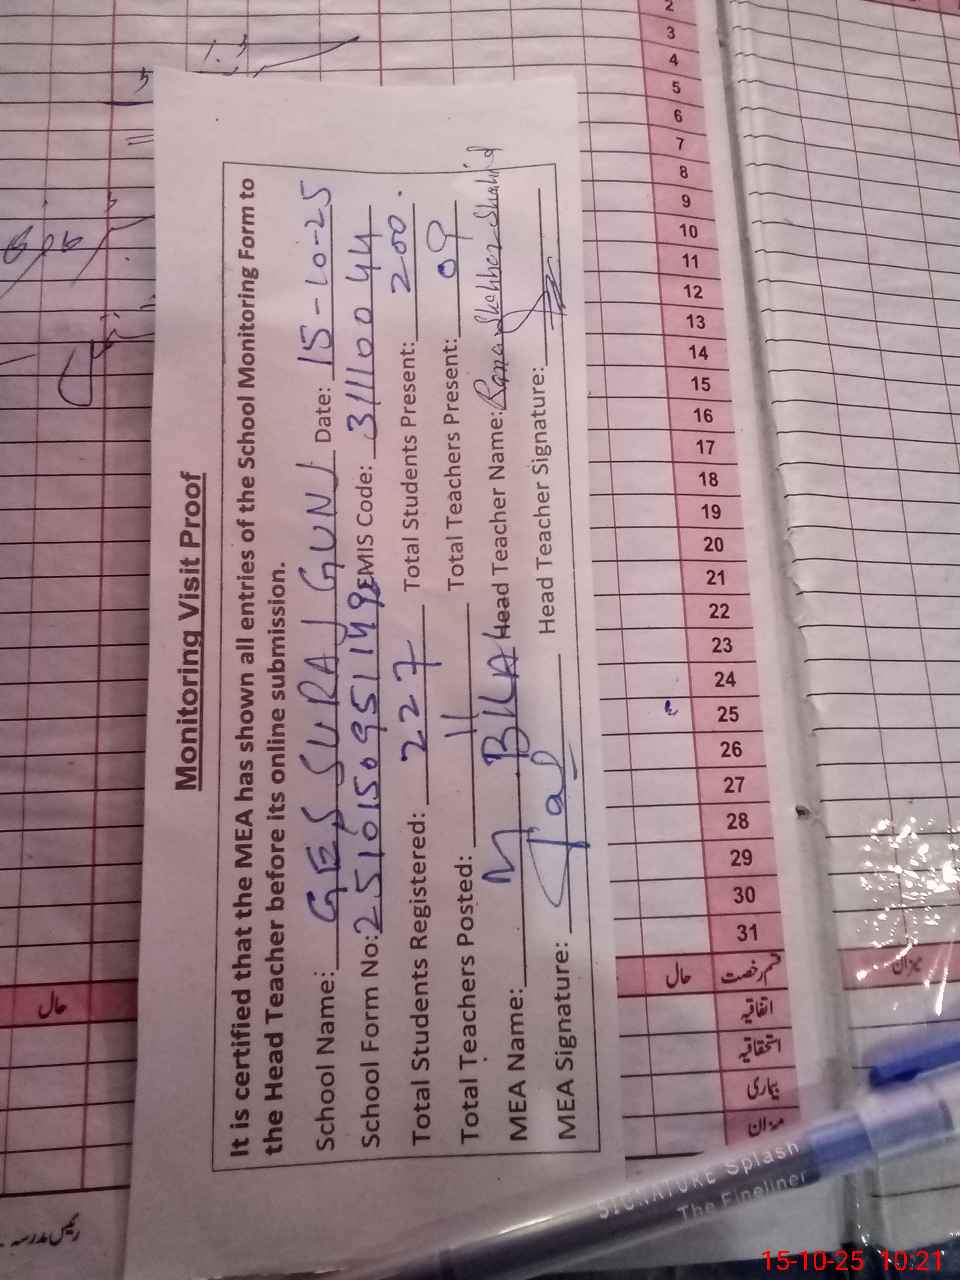 Monitoring Visit Proof
It is certified that the MEA has shown all entries of the School Monitoring Form to
the Head Teacher before its online submission.
School Name: GES SURAJ GUNJ Date: 15-10-25
School Form No: 2510150951149 EMIS Code: 31110044
Total Students Registered: 227 Total Students Present: 200.
Total Teachers Posted: 11 Total Teachers Present: 09
MEA Name: M BILAL Head Teacher Name: Rana Shahid
MEA Signature: Head Teacher Signature:
2
3
4
5
6
7
8
9
10
11
12
13
14
15
16
17
18
19
20
21
22
23
24
25
26
27
28
29
30
31
قسم رخصت
حال
اتفاقیہ
استحقاقیہ
بیماری
میزان
حال
میزان
رئیس مدرسہ
SIGNATURE Splash
The Fineliner
15-10-25 10:21